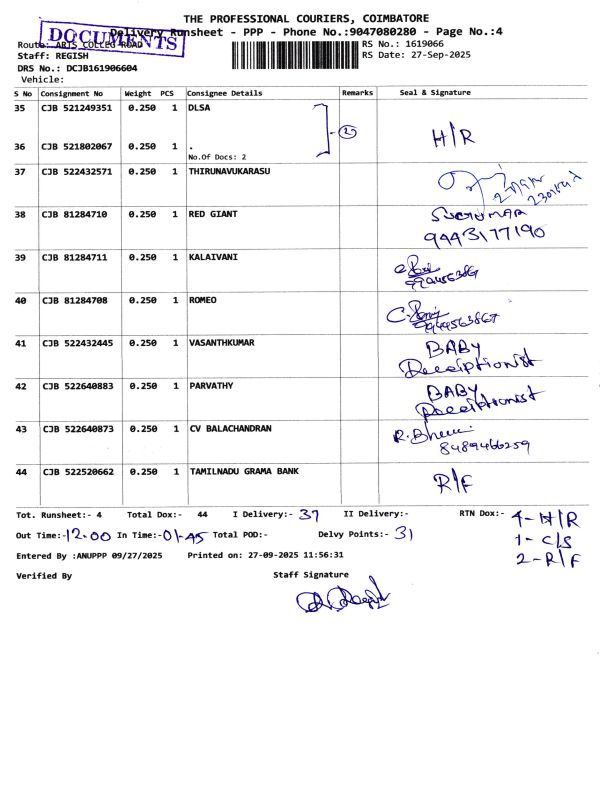 THE PROFESSIONAL COURIERS, COIMBATORE
DOCUMENTS
Delivery Runsheet - PPP - Phone No.:9047080280 - Page No.:4
Route: ARTS COLLEG ROAD
RS No.: 1619066
Staff: REGISH
RS Date: 27-Sep-2025
DRS No.: DCJB161906604
Vehicle:
S No Consignment No Weight PCS Consignee Details Remarks Seal & Signature
35 CJB 521249351 0.250 1 DLSA
2
36 CJB 521802067 0.250 1 . H/R
No.Of Docs: 2
37 CJB 522432571 0.250 1 THIRUNAVUKARASU
38 CJB 81284710 0.250 1 RED GIANT
9443177190
39 CJB 81284711 0.250 1 KALAIVANI
40 CJB 81284708 0.250 1 ROMEO
9944563867
41 CJB 522432445 0.250 1 VASANTHKUMAR BABY
Receiptionist
42 CJB 522640883 0.250 1 PARVATHY BABY
Receiptionist
43 CJB 522640873 0.250 1 CV BALACHANDRAN
8489466259
44 CJB 522520662 0.250 1 TAMILNADU GRAMA BANK R/F
Tot. Runsheet:- 4 Total Dox:- 44 I Delivery:- 37 II Delivery:- RTN Dox:- 4-H/R
Out Time:- 12.00 In Time:- 01-45 Total POD:- Delvy Points:- 31 1-C/S
Entered By :ANUPPP 09/27/2025 Printed on: 27-09-2025 11:56:31 2-R/F
Verified By Staff Signature